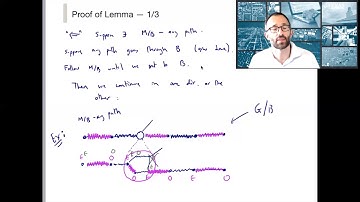 Proof of Lemma — 1/3
"⇐" Suppose ∃ M/B - aug path.
Suppose aug path goes through B (o/w done)
Follow M/B until we get to B.
Then we continue in one dir. or the
other:
M/B - aug path
G/B
Ex:
E
O
O
E
O
E
O